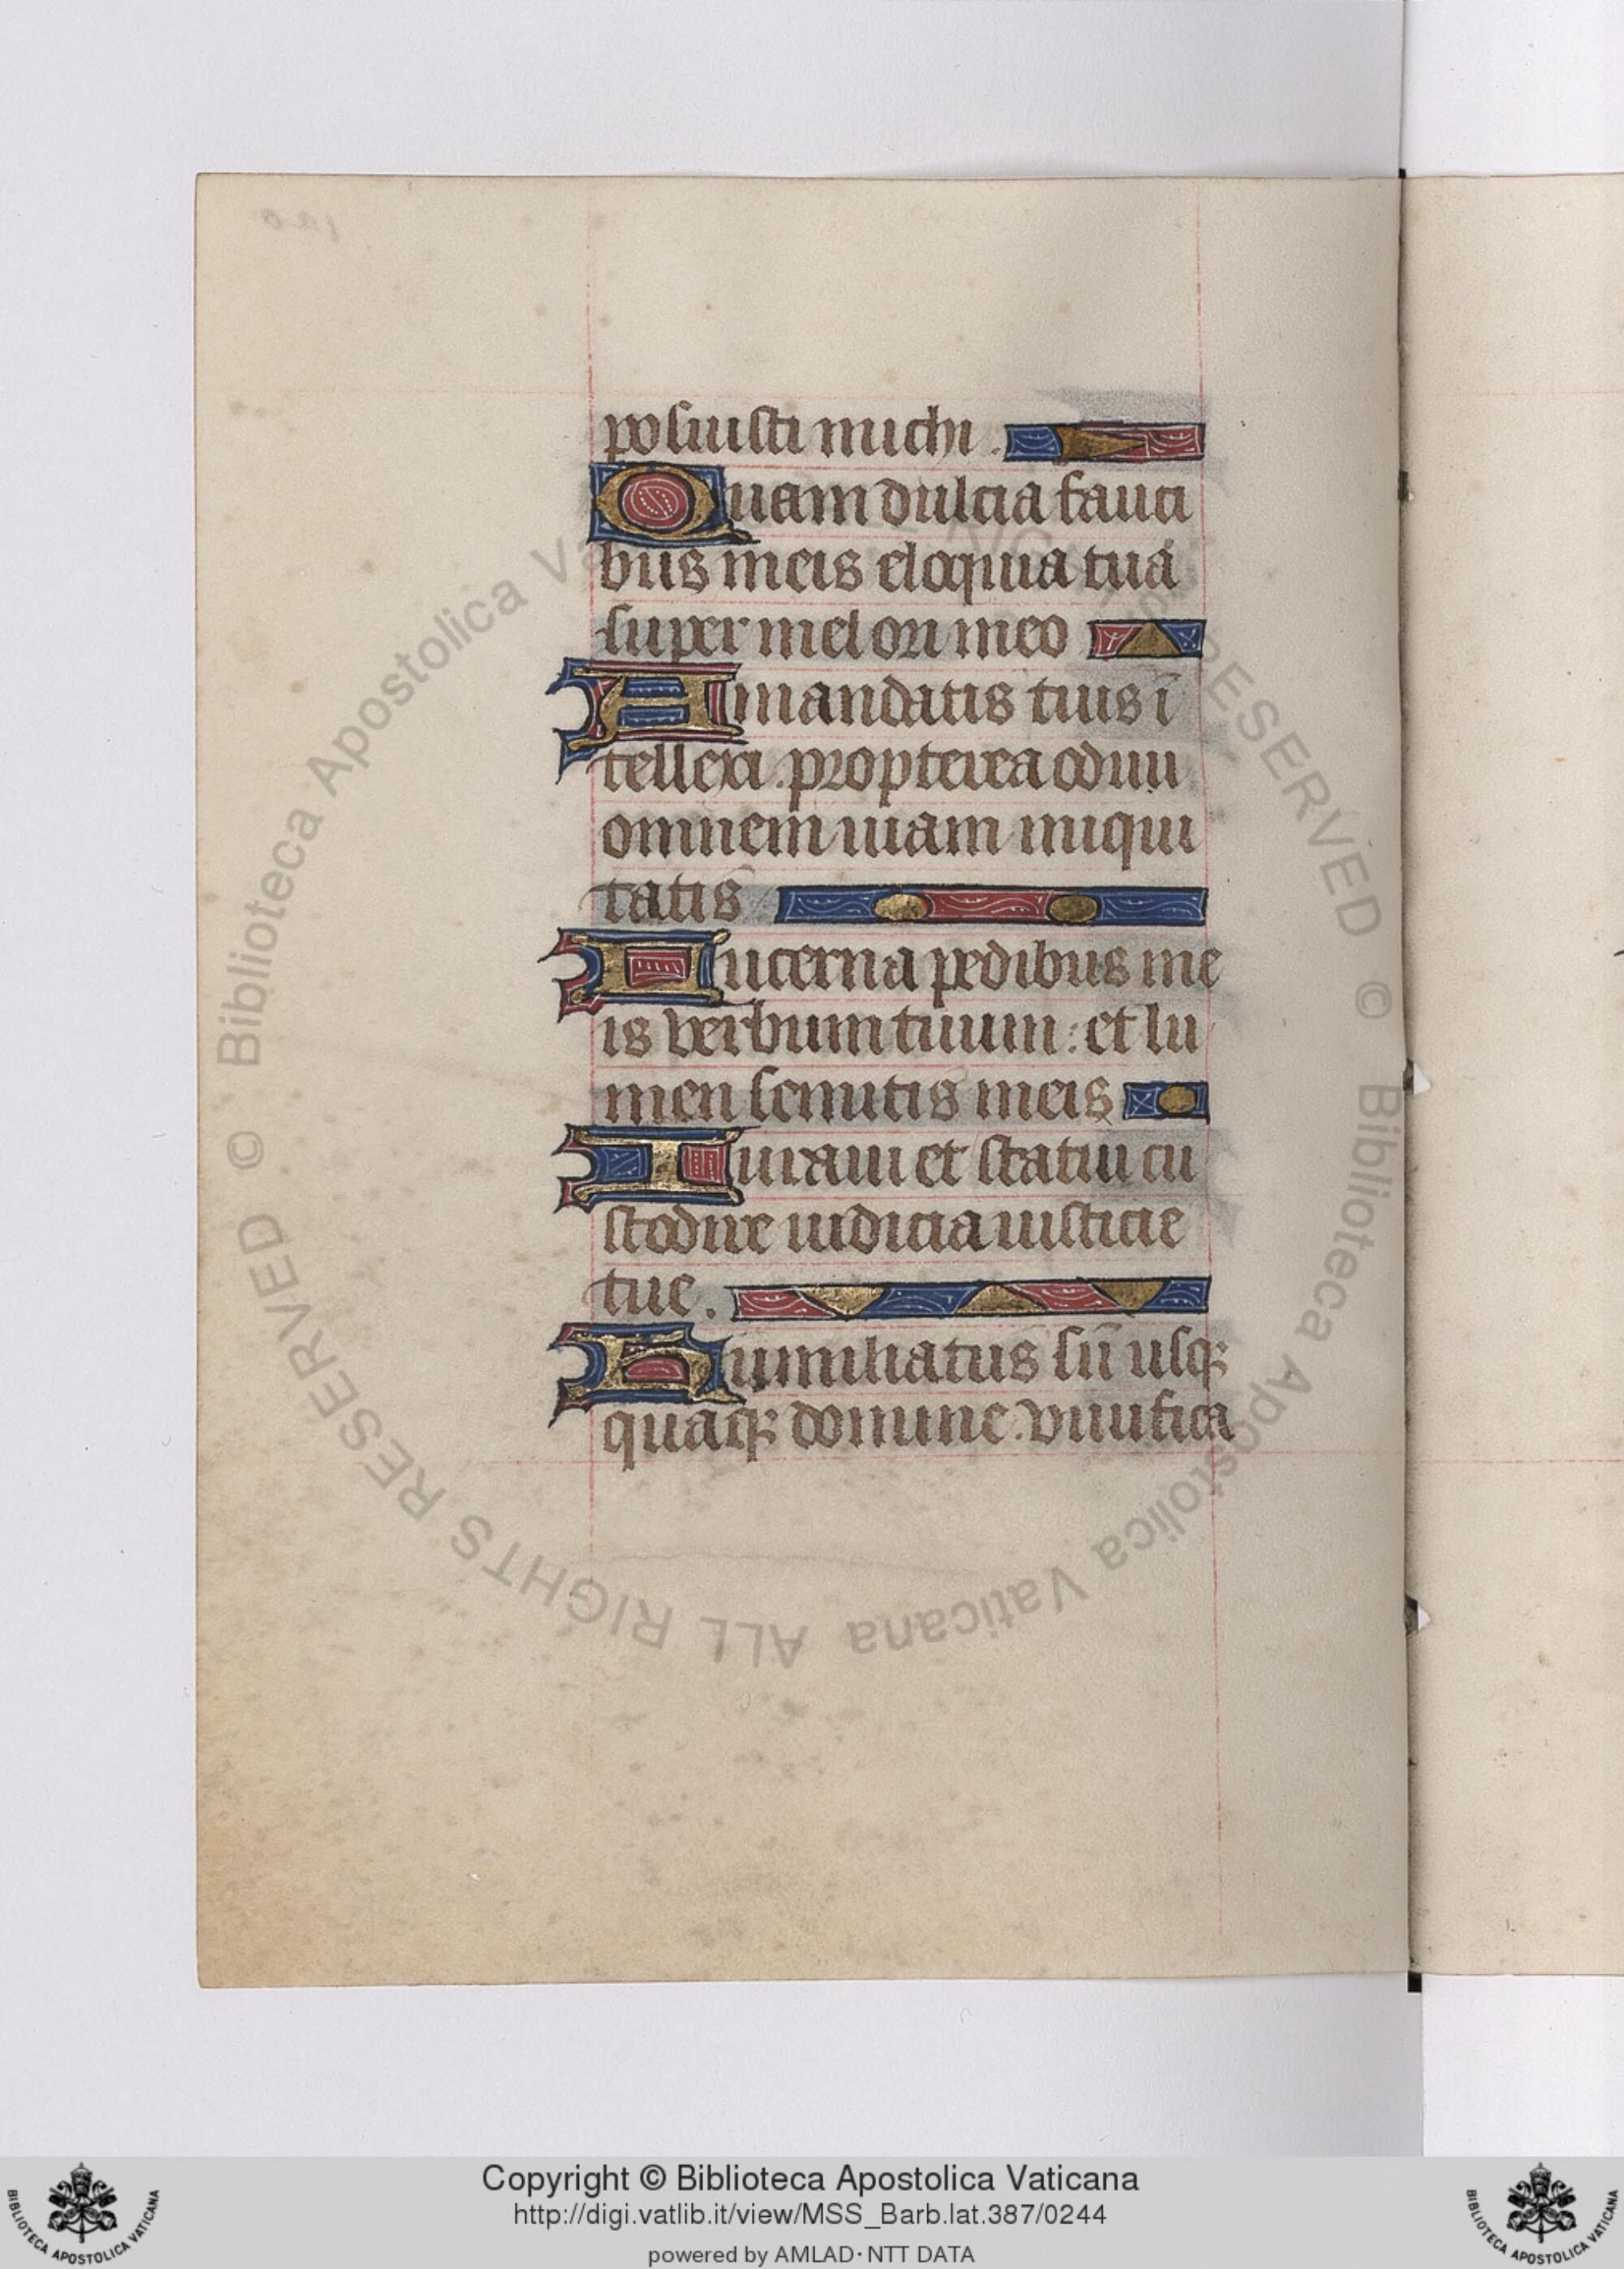 posuisti michi .
Quam dulcia fauci
bus meis eloquia tua
super mel ori meo
A mandatis tuis ī
tellexi . propterea odiui
omnem uiam iniqui
tatis
Lucerna pedibus me
is verbum tuum : et lu
men semitis meis
Iuraui et statui cu
stodire iudicia iusticie
tue .
Humiliatus sū usqꝫ
quaqꝫ domine . viuifica
© Biblioteca Apostolica Vaticana ALL RIGHTS RESERVED © Biblioteca Apostolica Vaticana ALL RIGHTS RESERVED
Copyright © Biblioteca Apostolica Vaticana
http://digi.vatlib.it/view/MSS_Barb.lat.387/0244
powered by AMLAD·NTT DATA
BIBLIOTECA APOSTOLICA VATICANA
BIBLIOTECA APOSTOLICA VATICANA